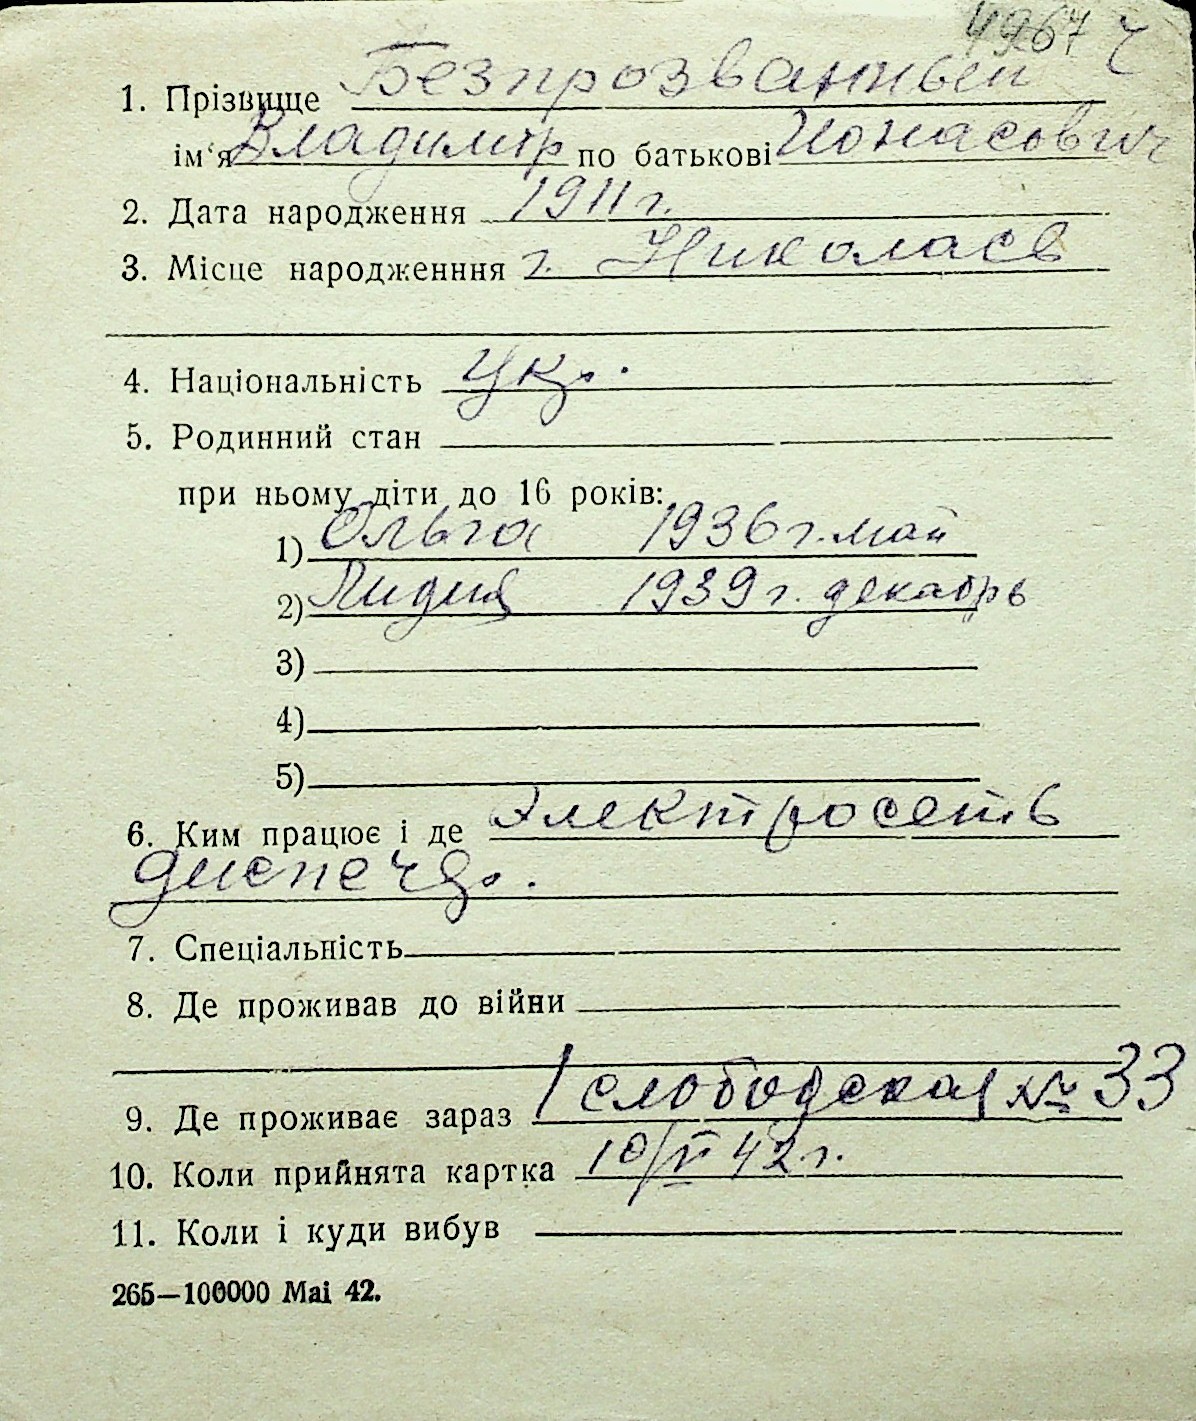 4967 Ч
1. Прізвище Безпрозванный
ім'я Владимир по батькові Ионасович
2. Дата народження 1911 г.
3. Місце народженння г. Николаев
4. Національність Укр.
5. Родинний стан
при ньому діти до 16 років:
1) Ольга 1936 г. май
2) Лидия 1939 г. декабрь
3)
4)
5)
6. Ким працює і де Электросеть
диспечер.
7. Спеціальність
8. Де проживав до війни
9. Де проживає зараз 1 слободская № 33
10. Коли прийнята картка 10/VI 42 г.
11. Коли і куди вибув
265—100000 Mai 42.